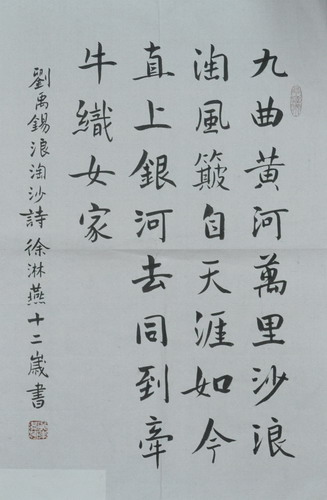 九曲黄河萬里沙浪
淘風簸自天涯如今
直上銀河去同到牽
牛織女家
劉禹錫浪淘沙詩 徐淋燕十二歲書